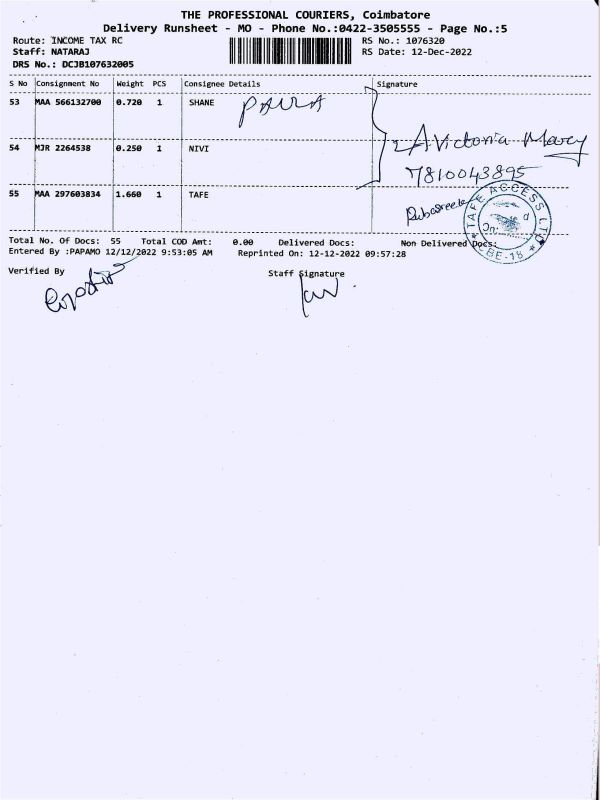 THE PROFESSIONAL COURIERS, Coimbatore
Delivery Runsheet - MO - Phone No.:0422-3505555 - Page No.:5
Route: INCOME TAX RC RS No.: 1076320
Staff: NATARAJ RS Date: 12-Dec-2022
DRS No.: DCJB107632005
S No Consignment No Weight PCS Consignee Details Signature
53 MAA 566132700 0.720 1 SHANE
54 MJR 2264538 0.250 1 NIVI A Victoria Mary
7810043895
55 MAA 297603834 1.660 1 TAFE
TAFE ACCESS LTD
CBE-18
Total No. Of Docs: 55 Total COD Amt: 0.00 Delivered Docs: Non Delivered Docs:
Entered By :PAPAMO 12/12/2022 9:53:05 AM Reprinted On: 12-12-2022 09:57:28
Verified By Staff Signature